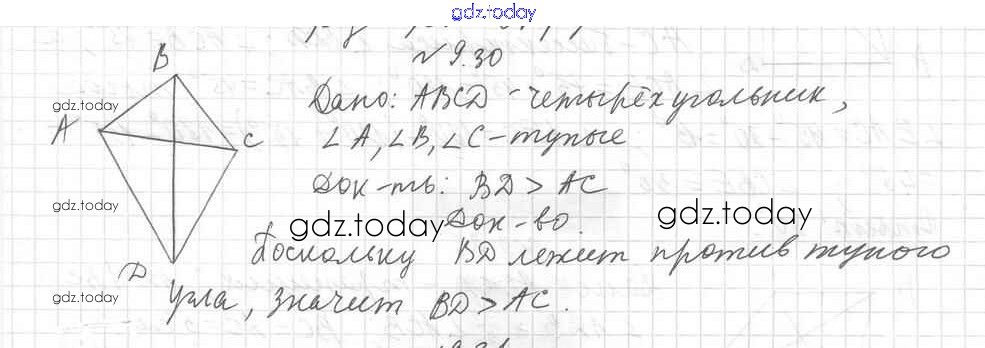 gdz.today
№ 9.30
B
Дано: ABCD - четырёхугольник,
gdz.today
A
∠A, ∠B, ∠C - тупые
C
Док-ть: BD > AC
gdz.today
gdz.today
Док-во.
gdz.today
Поскольку BD лежит против тупого
D
угла, значит BD > AC.
gdz.today